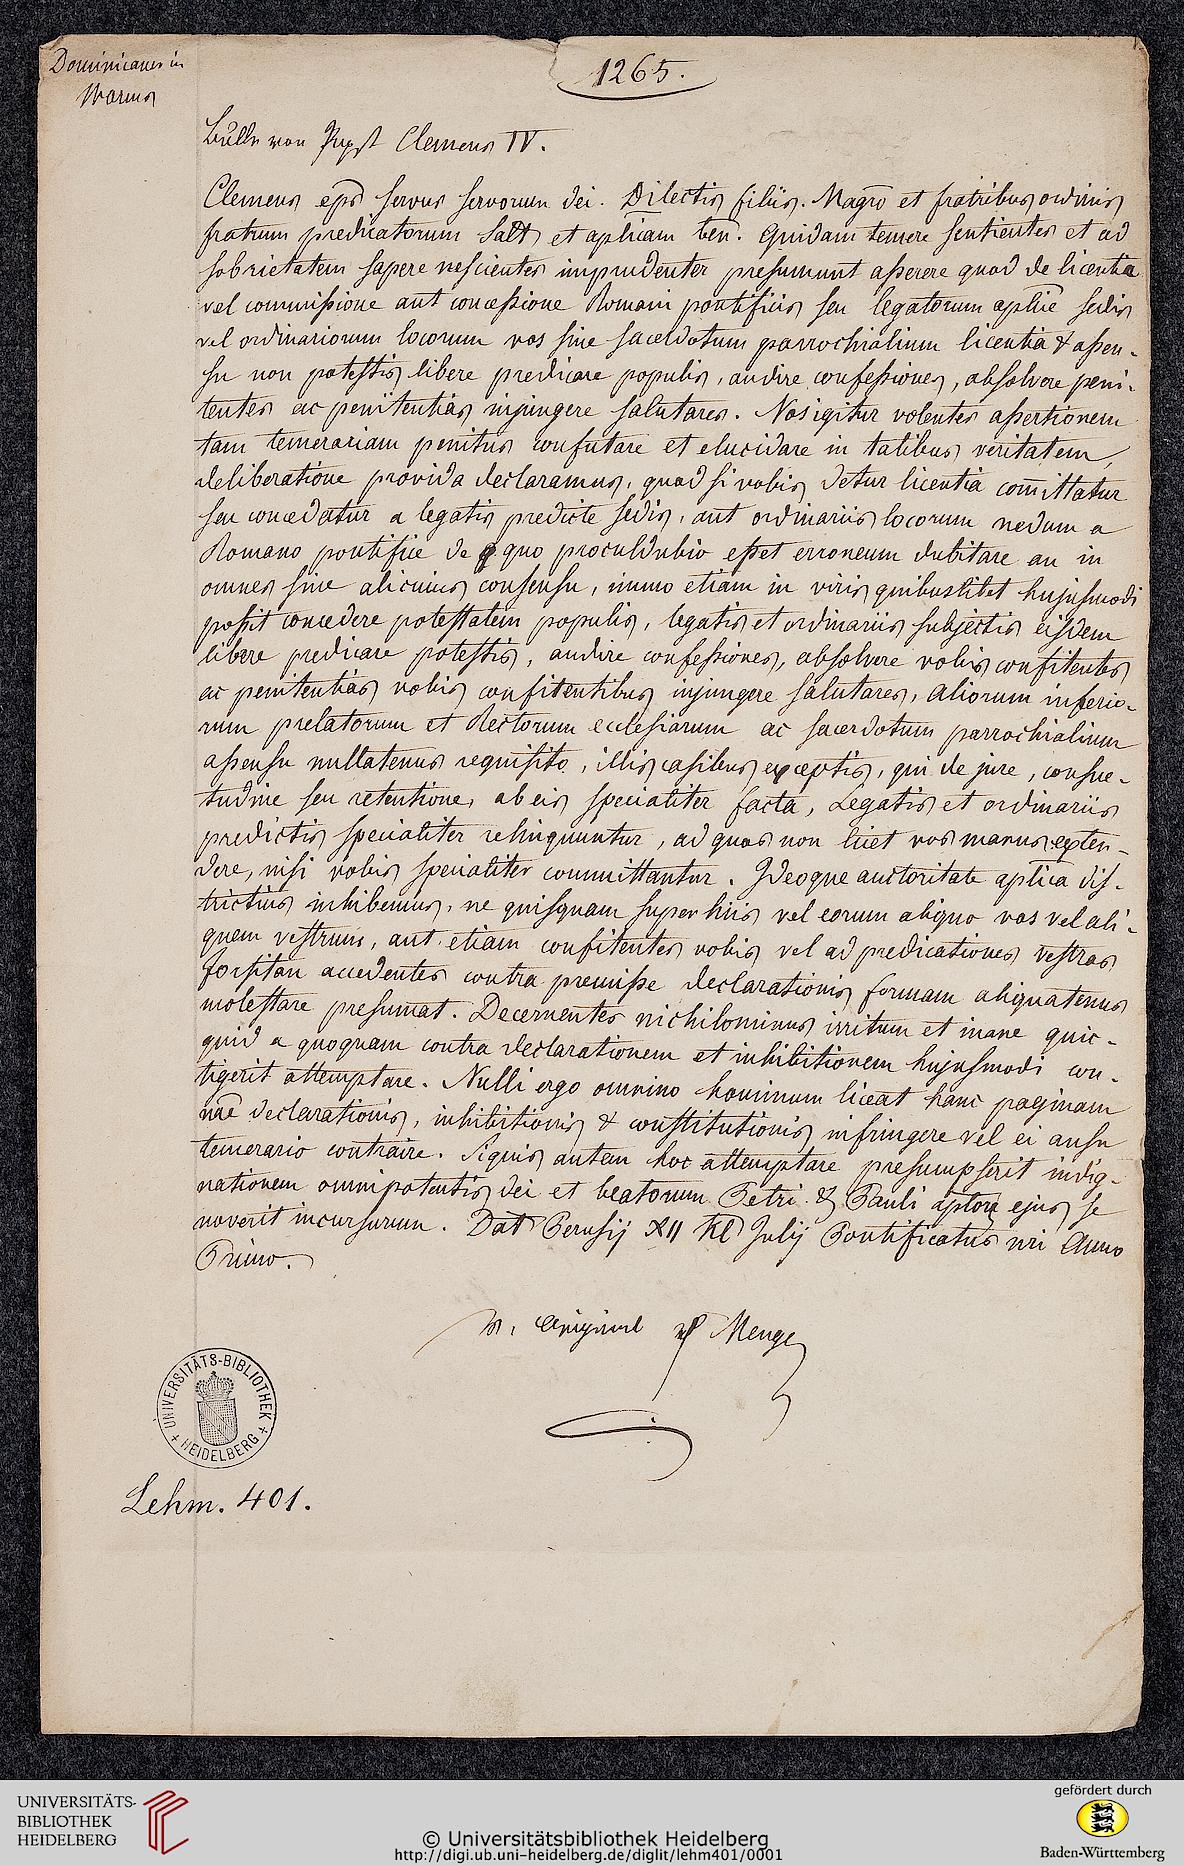 Dominicaner in
Worms
1265.
Bulle von Papst Clemens IV.
Clemens eps servus servorum dei. Dilectis filiis. Magro et fratribus ordinis
fratrum predicatorum Salt et aplicam ben. Quidam temere sentientes et ad
sobrietatem sapere nescientes imprudenter presumunt asserere quod de licentia
vel commissione aut concessione Romani pontificis seu legatorum aplice sedis
vel ordinariorum locorum vos sine sacerdotum parrochialium licentia & assen-
su non potestis libere predicare populis, audire confessiones, absolvere peni-
tentes ac penitentias injungere salutares. Nos igitur volentes assertionem
tam temerariam penitus confutare et elucidare in talibus veritatem,
deliberatione provida declaramus, quod si vobis detur licentia comittatur
seu concedatur a legatis predicte sedis, aut ordinariis locorum nedum a
Romano pontifice de quo proculdubio esset erroneum dubitare an in
omnes sine alicuius consensu, immo etiam in viris quibuslibet hujusmodi
possit concedere potestatem populis, legatis et ordinariis subjectis eisdem
libere predicare potestis, audire confessiones, absolvere vobis confitentes
ac penitentias vobis confitentibus injungere salutares, aliorum inferio-
rum prelatorum et Rectorum ecclesiarum ac sacerdotum parrochialium
assensu nullatenus requisito, illis casibus exceptis, qui de jure, consue-
tudine seu retentione, ab eis specialiter facta, Legatis et ordinariis
predictis specialiter relinquuntur, ad quos non licet vos manus exten-
dere, nisi vobis specialiter committantur. Ideoque auctoritate aplica dis-
trictius inhibemus, ne quisquam super hiis vel eorum aliquo vos vel ali-
quem vestrum, aut etiam confitentes vobis vel ad predicationes vestras
forsitan accedentes contra premisse declarationis formam aliquatenus
molestare presumat. Decernentes nichilominus irritum et inane quic-
quid a quoquam contra declarationem et inhibitionem hujusmodi con-
tigerit attemptare. Nulli ergo omnino hominum liceat hanc paginam
nre declarationis, inhibitionis & constitutionis infringere vel ei ausu
temerario contraire. Siquis autem hoc attemptare presumpserit indig-
nationem omnipotentis dei et beatorum Petri & Pauli aplor ejus se
noverit incursurum. Dat Perusij XII Kl Julij Pontificatus nri Anno
Primo.
v. Original
UNIVERSITÄTS-BIBLIOTHEK
HEIDELBERG
Lehm. 401.
UNIVERSITÄTS-
BIBLIOTHEK
HEIDELBERG
© Universitätsbibliothek Heidelberg
http://digi.ub.uni-heidelberg.de/diglit/lehm401/0001
gefördert durch
Baden-Württemberg